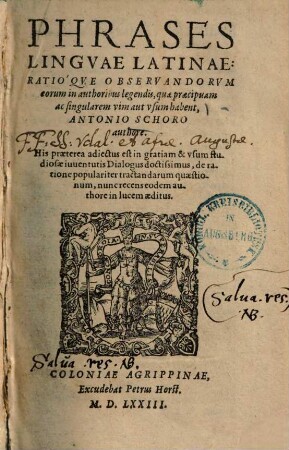 PHRASES
LINGVAE LATINAE:
RATIO'QVE OBSERVANDORVM
eorum in authoribus legendis, quæ præcipuam
ac singularem vim aut vsum habent,
ANTONIO SCHORO
authore.
F. F. SS. Vdal. et Afræ. Augustæ
His præterea adiectus est in gratiam & vsum stu-
diosæ iuuentutis Dialogus doctissimus, de ra-
tione populariter tractandarum quæstio-
num, nunc recens eodem au-
thore in lucem æditus.
IN
AUGSBURG
Salua. res.
NB.
Salua res. NB.
COLONIAE AGRIPPINAE,
Excudebat Petrus Horst.
M. D. LXXIII.